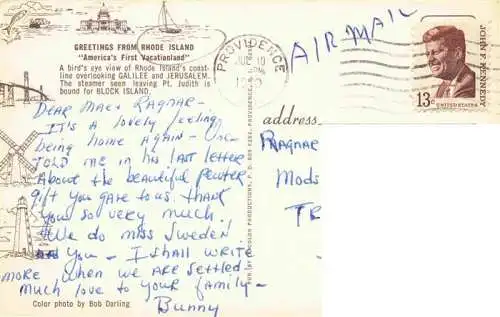 GREETINGS FROM RHODE ISLAND
"America's First Vacationland"
A bird's eye view of Rhode Island's coast-
line overlooking GALILEE and JERUSALEM.
The steamer seen leaving Pt. Judith is
bound for BLOCK ISLAND.
DEAR MAE & RAGNAR -
IT'S A lovely feeling
being home AGAIN -
TOLD ME IN his LAST letter
About the beautiful pewter
gift you gave to us. Thank
you so very much.
We do miss Sweden
you - I shall write
more when we are settled.
Much love to your family -
Bunny
Color photo by Bob Darling
PROVIDENCE
AIR MAIL
JOHN F. KENNEDY
13c UNITED STATES
address
RAGNAR
Mods
TR